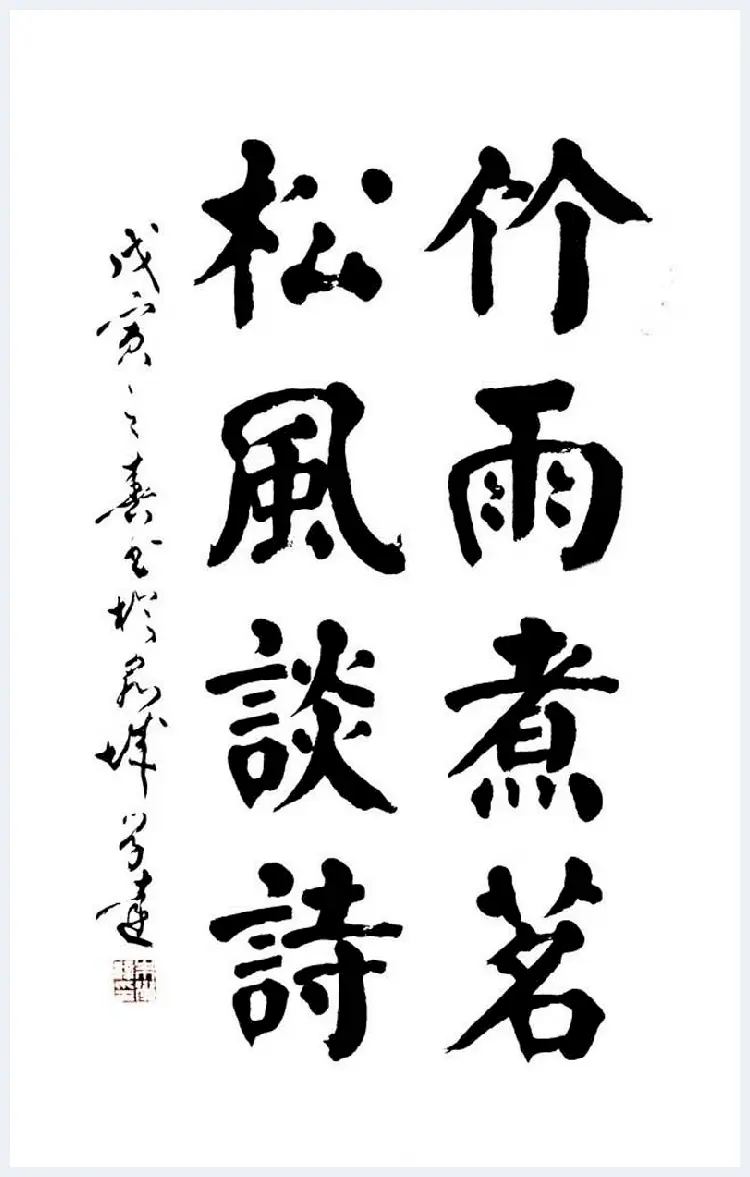 竹雨煮茗
松風談詩
戊寅之春書於 城 達